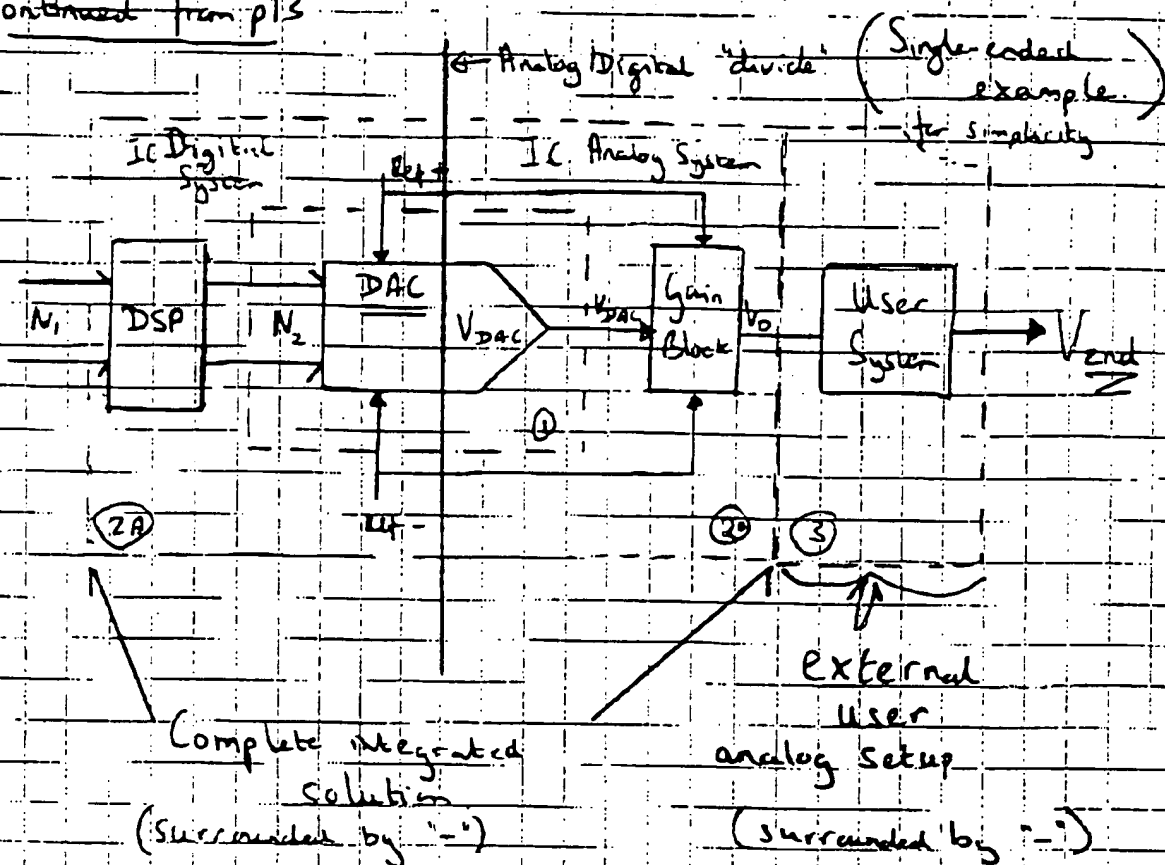 ontinued from p15
← Analog/Digital "divide"
(Single-ended
example
for simplicity)
IC Digital
System
Ref +
IC Analog System
N1
DSP
N2
DAC
VDAC
VDAC
Gain
Block
VO
User
System
V2nd
①
Ref -
2A
3
external
user
analog setup
Complete integrated
solution
(surrounded by "-")
(surrounded by "-")